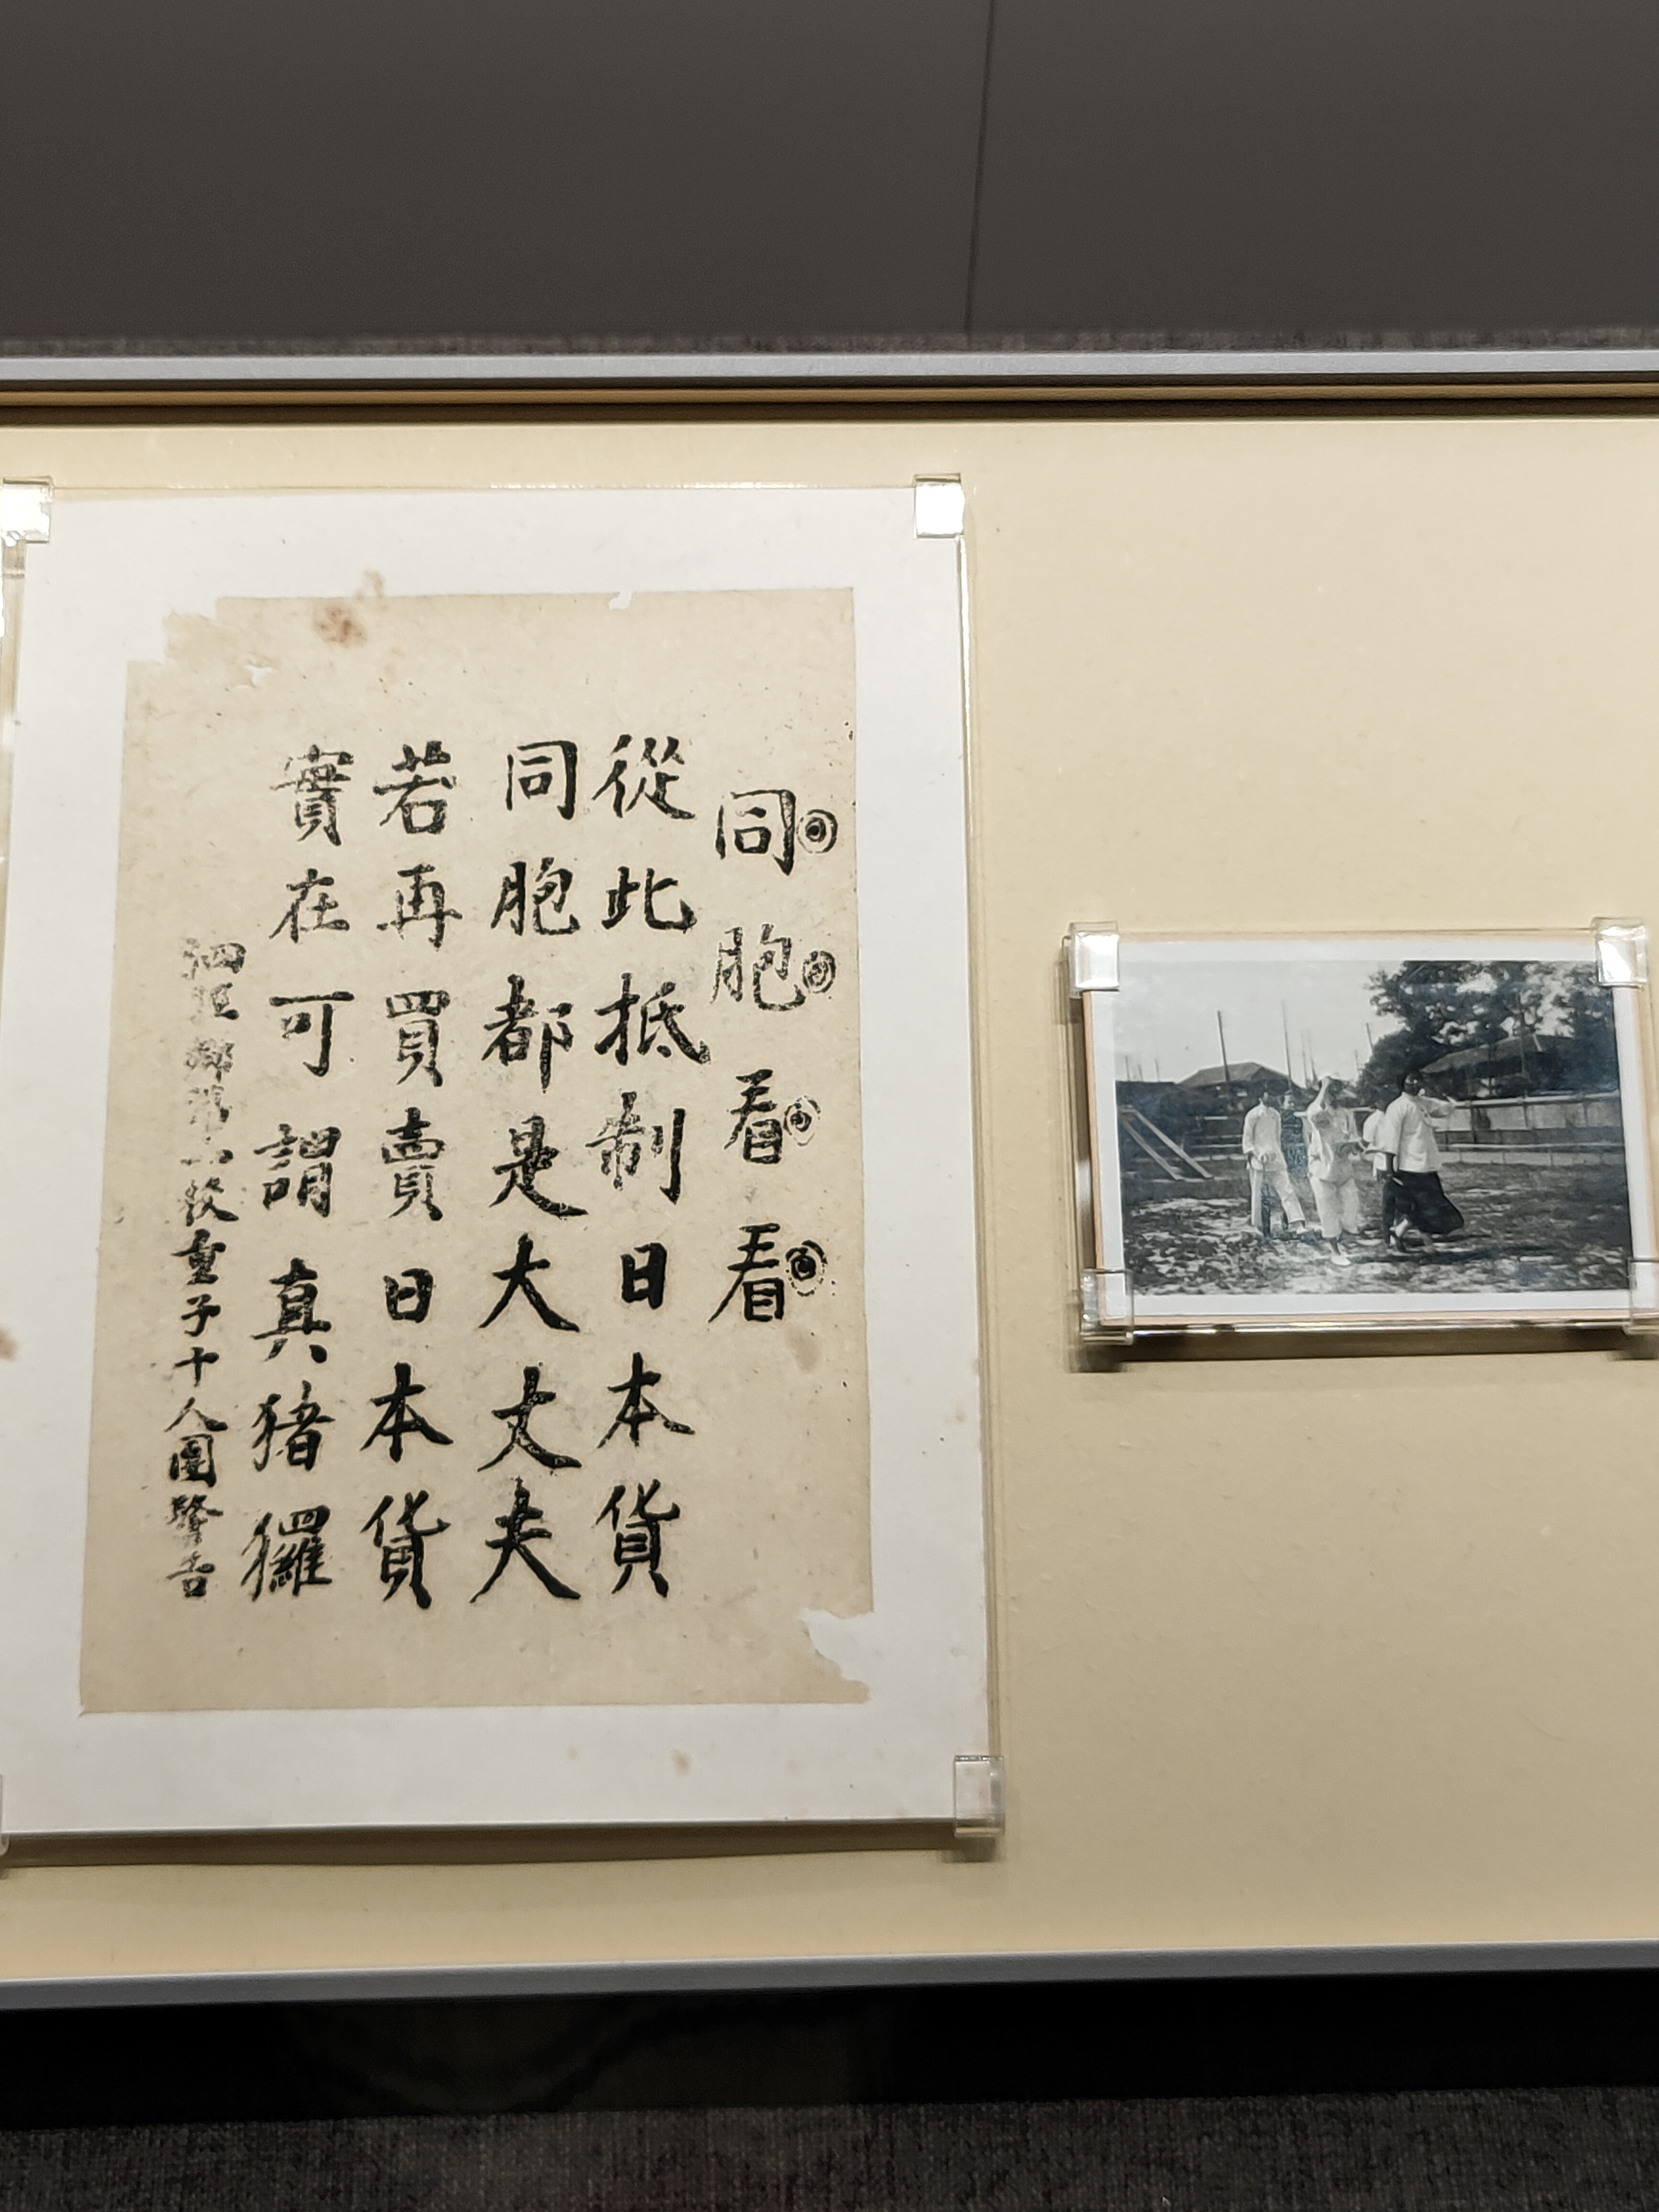 同胞看看
從此抵制日本貨
同胞都是大丈夫
若再買賣日本貨
實在可謂真猪玀
泗 鄉第 校童子十人團警告